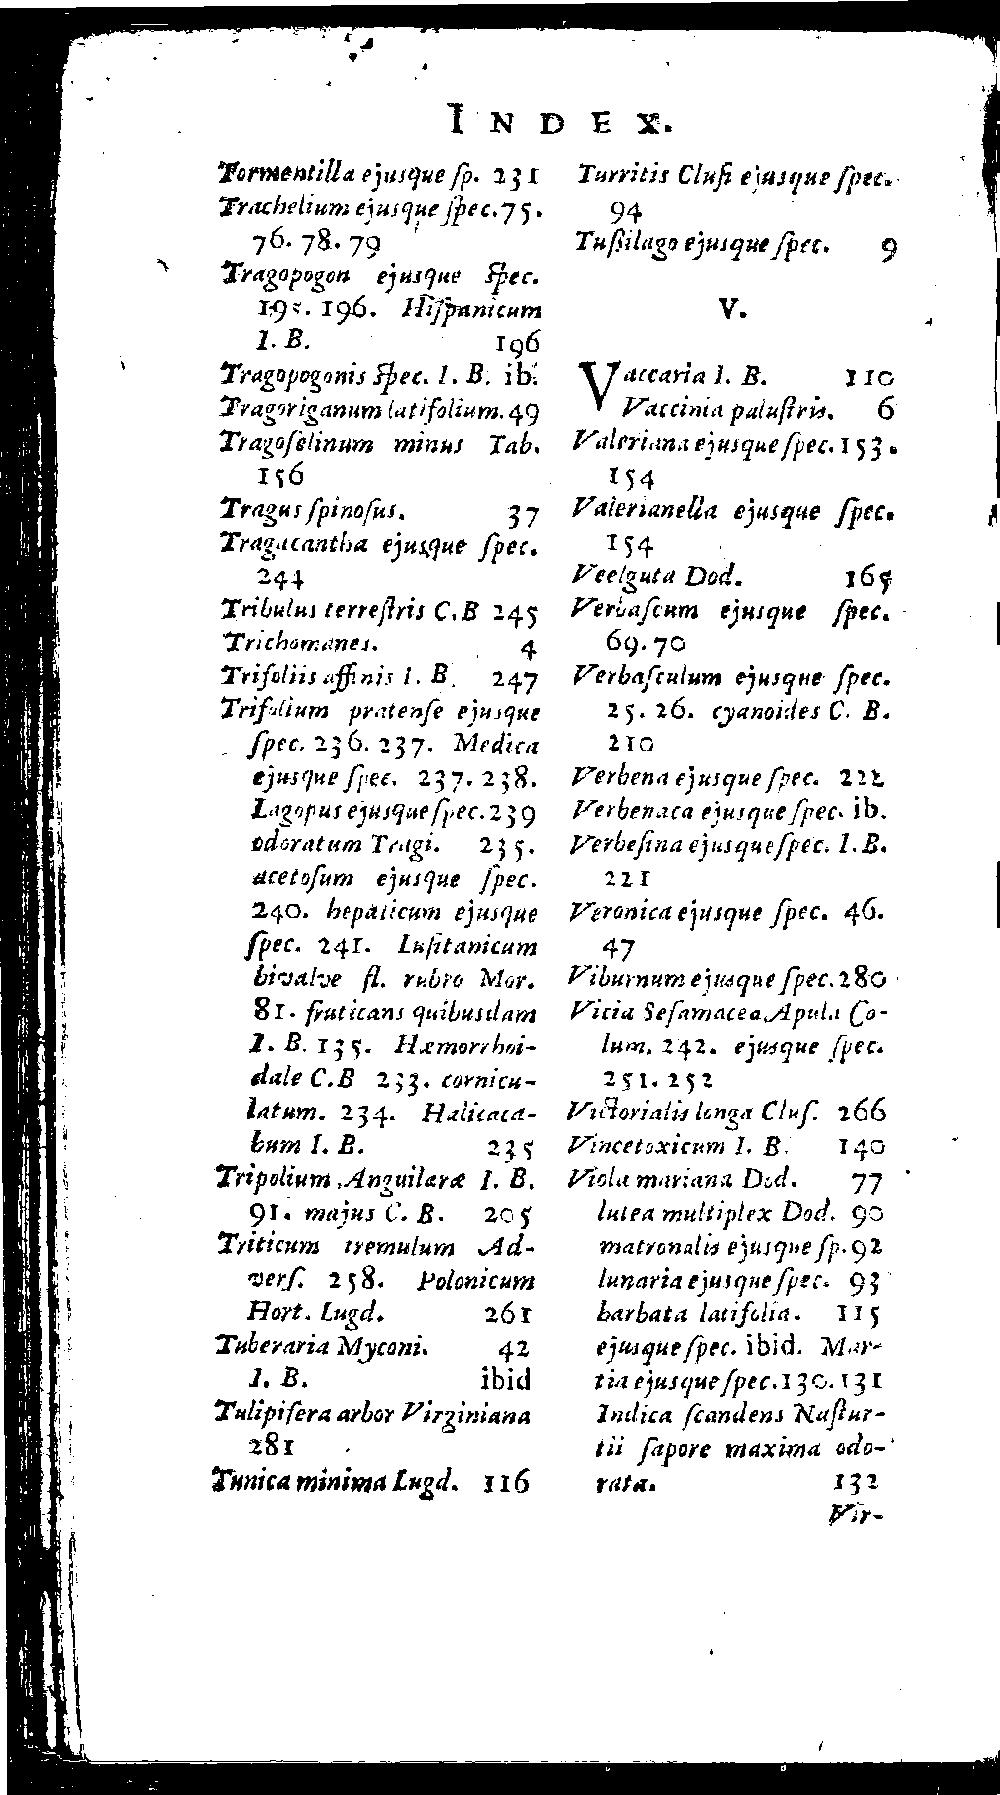 INDEX.
Tormentilla ejusque ſp. 231
Trachelium ejusque ſpec. 75.
76. 78. 79
Tragopogon ejusque ſpec.
195. 196. Hiſpanicum
I. B. 196
Tragopogonis ſpec. I. B. ib.
Tragoriganum latifolium. 49
Tragoſelinum minus Tab.
156
Tragus ſpinoſus. 37
Tragacantha ejusque ſpec.
244
Tribulus terreſtris C.B 245
Trichomanes. 4
Trifoliis affinis I. B. 247
Trifolium pratenſe ejusque
ſpec. 236. 237. Medica
ejusque ſpec. 237. 238.
Lagopus ejusque ſpec. 239
odoratum Tragi. 235.
acetoſum ejusque ſpec.
240. hepaticum ejusque
ſpec. 241. Luſitanicum
bivalve fl. rubro Mor.
81. fruticans quibusdam
I. B. 135. Hæmorrhoi-
dale C.B 233. cornicu-
latum. 234. Halicaca-
bum I. B. 235
Tripolium Anguilaræ I. B.
91. majus C. B. 205
Triticum tremulum Ad-
verſ. 258. Polonicum
Hort. Lugd. 261
Tuberaria Myconi. 42
I. B. ibid
Tulipifera arbor Virginiana
281
Tunica minima Lugd. 116
Turritis Cluſi ejusque ſpec.
94
Tuſſilago ejusque ſpec. 9
V.
Vaccaria I. B. 110
Vaccinia paluſtris. 6
Valeriana ejusque ſpec. 153.
154
Valerianella ejusque ſpec.
154
Veelguta Dod. 165
Verbaſcum ejusque ſpec.
69. 70
Verbaſculum ejusque ſpec.
25. 26. cyanoides C. B.
210
Verbena ejusque ſpec. 222
Verbenaca ejusque ſpec. ib.
Verbeſina ejusque ſpec. I. B.
221
Veronica ejusque ſpec. 46.
47
Viburnum ejusque ſpec. 280
Vicia Seſamacea Apula Co-
lum. 242. ejusque ſpec.
251. 252
Victorialis longa Cluſ. 266
Vincetoxicum I. B. 140
Viola mariana Dod. 77
lutea multiplex Dod. 90
matronalis ejusque ſp. 92
lunaria ejusque ſpec. 93
barbata latifolia. 115
ejusque ſpec. ibid. Mar-
tia ejusque ſpec. 130. 131
Indica ſcandens Naſtur-
tii ſapore maxima odo-
rata. 132
Vir-